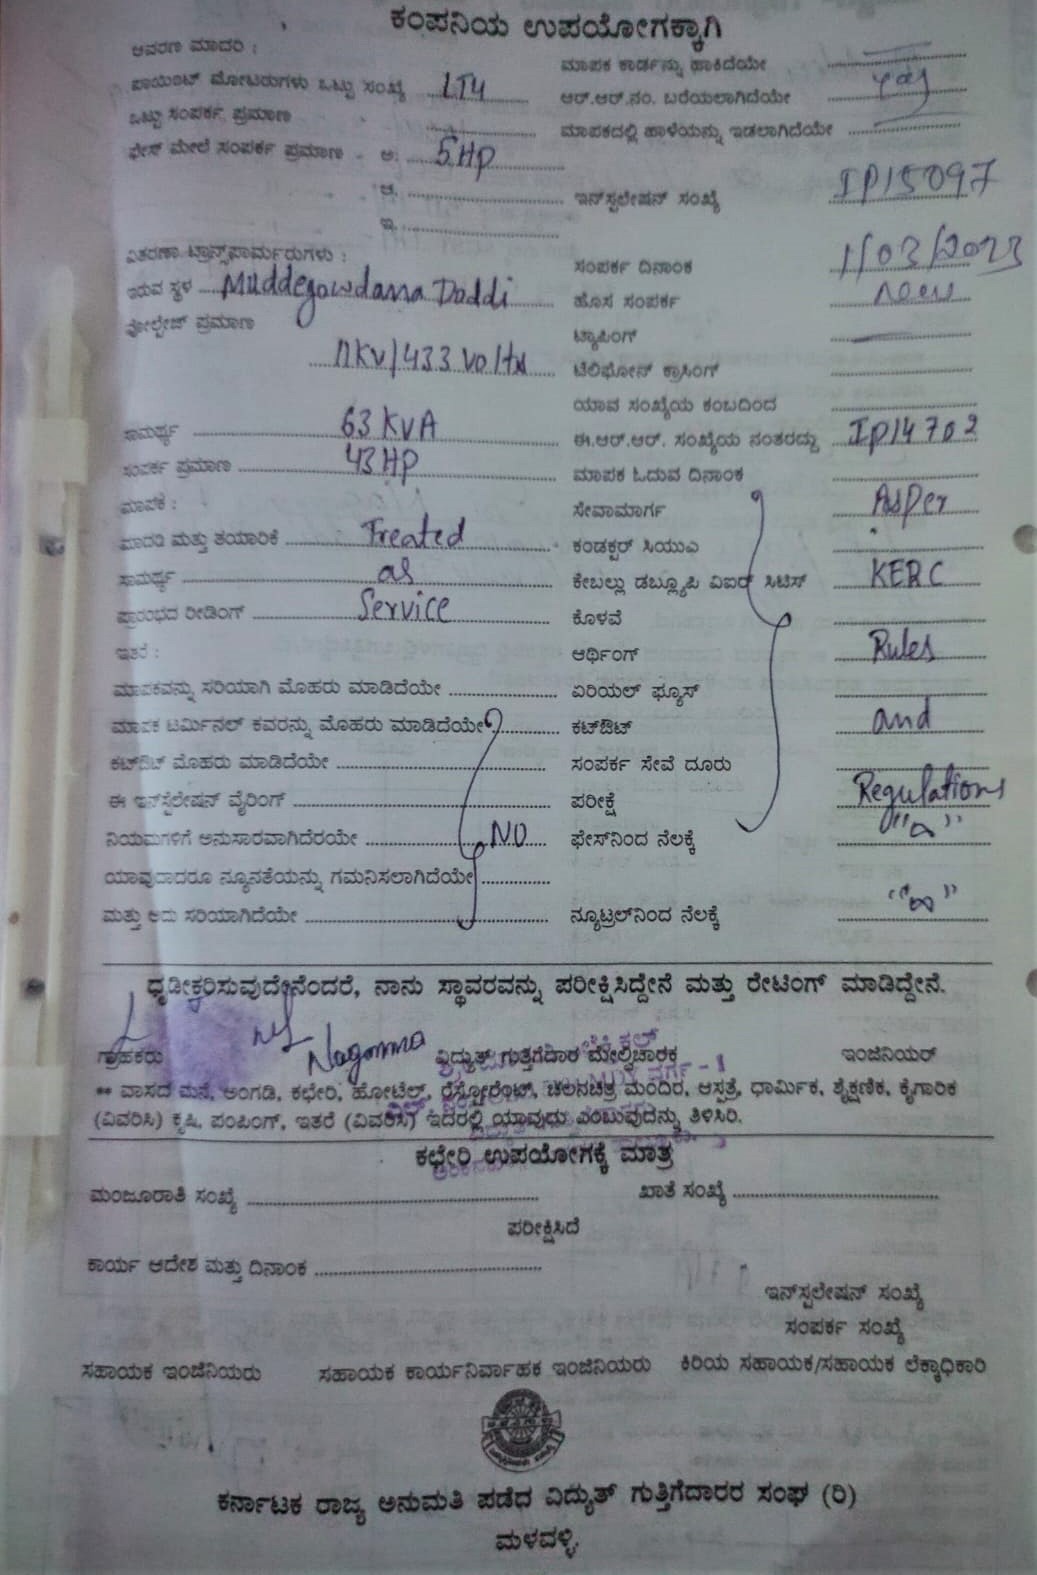 ಕಂಪನಿಯ ಉಪಯೋಗಕ್ಕಾಗಿ
ಆವರಣ ಮಾದರಿ :
ಮಾಪಕ ಕಾರ್ಡನ್ನು ಹಾಕಿದೆಯೇ
ಪಾಯಿಂಟ್ ಮೋಟರುಗಳು ಒಟ್ಟು ಸಂಖ್ಯೆ LT4
ಆರ್.ಆರ್.ನಂ. ಬರೆಯಲಾಗಿದೆಯೇ yes
ಒಟ್ಟು ಸಂಪರ್ಕ ಪ್ರಮಾಣ
ಮಾಪಕದಲ್ಲಿ ಹಾಳೆಯನ್ನು ಇಡಲಾಗಿದೆಯೇ
ಫೇಸ್ ಮೇಲೆ ಸಂಪರ್ಕ ಪ್ರಮಾಣ - ಅ. 5HP
ಆ.
ಇನ್‌ಸ್ಟಲೇಷನ್ ಸಂಖ್ಯೆ IP15097
ಇ.
ವಿತರಣಾ ಟ್ರಾನ್ಸ್‌ಫಾರ್ಮರುಗಳು :
ಸಂಪರ್ಕ ದಿನಾಂಕ 1/03/2023
ಇರುವ ಸ್ಥಳ Muddegowdana Doddi
ಹೊಸ ಸಂಪರ್ಕ new
ವೋಲ್ಟೇಜ್ ಪ್ರಮಾಣ
ಟ್ಯಾಪಿಂಗ್
11KV/433 volts
ಟೆಲಿಫೋನ್ ಕ್ರಾಸಿಂಗ್
ಯಾವ ಸಂಖ್ಯೆಯ ಕಂಬದಿಂದ
ಸಾಮರ್ಥ್ಯ 63 KVA
ಈ.ಆರ್.ಆರ್. ಸಂಖ್ಯೆಯ ನಂತರದ್ದು IP14702
ಸಂಪರ್ಕ ಪ್ರಮಾಣ 43HP
ಮಾಪಕ ಓದುವ ದಿನಾಂಕ
ಮಾಪಕ :
ಸೇವಾಮಾರ್ಗ Asper
ಮಾದರಿ ಮತ್ತು ತಯಾರಿಕೆ Treated
ಕಂಡಕ್ಟರ್ ಸಿಯುಎ
ಸಾಮರ್ಥ್ಯ as
ಕೇಬಲ್ಲು ಡಬ್ಲ್ಯೂಪಿ ವಿಐರ್ ಸಿಟಿಸ್ KERC
ಪ್ರಾರಂಭದ ರೀಡಿಂಗ್ Service
ಕೊಳವೆ
ಇತರೆ :
ಆರ್ಥಿಂಗ್ Rules
ಮಾಪಕವನ್ನು ಸರಿಯಾಗಿ ಮೊಹರು ಮಾಡಿದೆಯೇ
ಏರಿಯಲ್ ಫ್ಯೂಸ್
ಮಾಪಕ ಟರ್ಮಿನಲ್ ಕವರನ್ನು ಮೊಹರು ಮಾಡಿದೆಯೇ
ಕಟ್ಔಟ್ and
ಕಟ್ಔಟ್ ಮೊಹರು ಮಾಡಿದೆಯೇ
ಸಂಪರ್ಕ ಸೇವೆ ದೂರು
ಈ ಇನ್‌ಸ್ಟಲೇಷನ್ ವೈರಿಂಗ್
ಪರೀಕ್ಷೆ Regulations
ನಿಯಮಗಳಿಗೆ ಅನುಸಾರವಾಗಿದೆರಯೇ NO
ಫೇಸ್‌ನಿಂದ ನೆಲಕ್ಕೆ "∞"
ಯಾವುದಾದರೂ ನ್ಯೂನತೆಯನ್ನು ಗಮನಿಸಲಾಗಿದೆಯೇ
ಮತ್ತು ಅದು ಸರಿಯಾಗಿದೆಯೇ
ನ್ಯೂಟ್ರಲ್‌ನಿಂದ ನೆಲಕ್ಕೆ "∞"
ಧೃಡೀಕ್ಕರಿಸುವುದೇನೆಂದರೆ, ನಾನು ಸ್ಥಾವರವನ್ನು ಪರೀಕ್ಷಿಸಿದ್ದೇನೆ ಮತ್ತು ರೇಟಿಂಗ್ ಮಾಡಿದ್ದೇನೆ.
Nagamma
ಗ್ರಾಹಕರು
ವಿದ್ಯುತ್ ಗುತ್ತಗೆದಾರ ಮೇಲ್ವಿಚಾರಕ
ಇಂಜಿನಿಯರ್
** ವಾಸದ ಮನೆ, ಅಂಗಡಿ, ಕಛೇರಿ, ಹೋಟೆಲ್, ರೆಸ್ಟೋರೆಂಟ್, ಚಲನಚಿತ್ರ ಮಂದಿರ, ಆಸ್ಪತ್ರೆ, ಧಾರ್ಮಿಕ, ಶೈಕ್ಷಣಿಕ, ಕೈಗಾರಿಕ
(ವಿವರಿಸಿ) ಕೃಷಿ, ಪಂಪಿಂಗ್, ಇತರೆ (ವಿವರಿಸಿ) ಇದರಲ್ಲಿ ಯಾವುದು ಎಂಬುವುದನ್ನು ತಿಳಿಸಿರಿ.
ಕಛೇರಿ ಉಪಯೋಗಕ್ಕೆ ಮಾತ್ರ
ಮಂಜೂರಾತಿ ಸಂಖ್ಯೆ
ಖಾತೆ ಸಂಖ್ಯೆ
ಪರೀಕ್ಷಿಸಿದೆ
ಕಾರ್ಯ ಆದೇಶ ಮತ್ತು ದಿನಾಂಕ
ಇನ್‌ಸ್ಟಲೇಷನ್ ಸಂಖ್ಯೆ
ಸಂಪರ್ಕ ಸಂಖ್ಯೆ
ಸಹಾಯಕ ಇಂಜಿನಿಯರು
ಸಹಾಯಕ ಕಾರ್ಯನಿರ್ವಾಹಕ ಇಂಜಿನಿಯರು
ಕಿರಿಯ ಸಹಾಯಕ/ಸಹಾಯಕ ಲೆಕ್ಕಾಧಿಕಾರಿ
ಕರ್ನಾಟಕ ರಾಜ್ಯ ಅನುಮತಿ ಪಡೆದ ವಿದ್ಯುತ್ ಗುತ್ತಿಗೆದಾರರ ಸಂಘ (ರಿ)
ಮಳವಳ್ಳಿ.